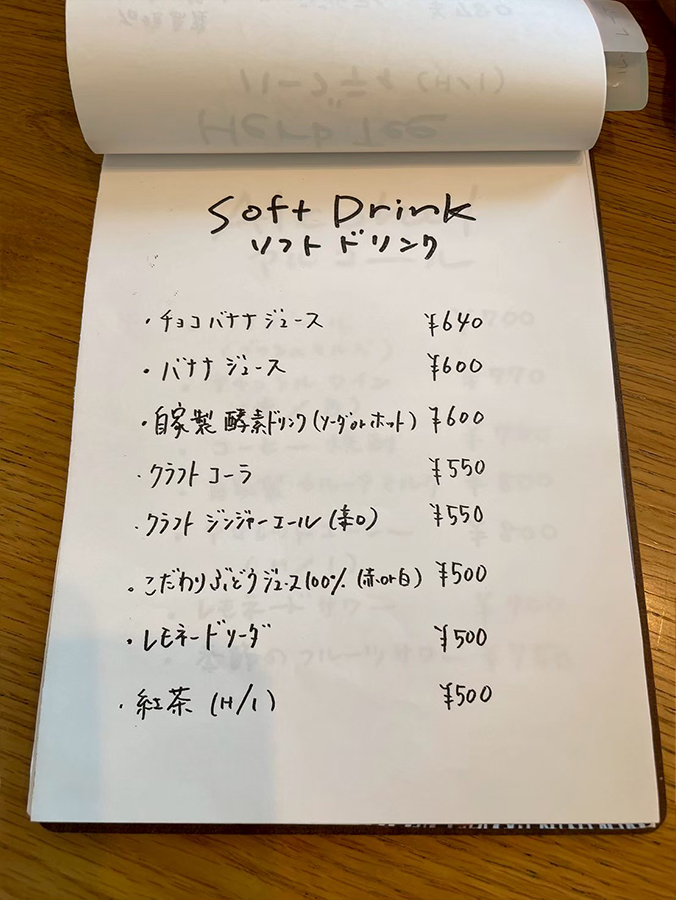 Soft Drink
ソフトドリンク
・チョコバナナジュース ¥640
・バナナジュース ¥600
・自家製 酵素ドリンク(ソーダorホット) ¥600
・クラフトコーラ ¥550
・クラフト ジンジャーエール(辛口) ¥550
・こだわりぶどうジュース100%(赤or白) ¥500
・レモネードソーダ ¥500
・紅茶 (H/I) ¥500